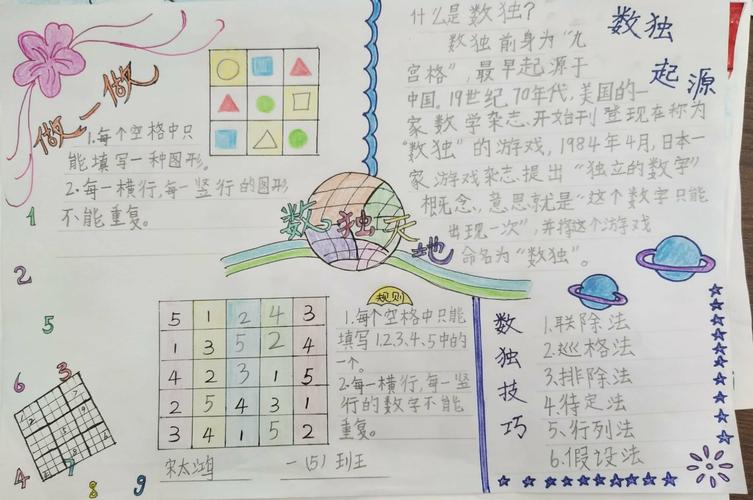 做一做
1.每个空格中只
能填写一种图形。
2.每一横行,每一竖行的图形
不能重复。
什么是数独?
数独前身为“九
宫格”,最早起源于
中国。19世纪70年代,美国的一
家数学杂志开始刊登现在称为
“数独”的游戏,1984年4月,日本一
家游戏杂志提出“独立的数字”
相概念、意思就是“这个数字只能
出现一次”,并将这个游戏
命名为“数独”。
数独
起源
数独天地
1
2
5
6
3
4
7
8
9
5 1 2 4 3
1 3 5 2 4
4 2 3 1 5
2 5 4 3 1
3 4 1 5 2
宋太鸿 一(5)班
规则
1.每个空格中只能
填写1.2.3.4.5中的
一个。
2.每一横行,每一竖
行的数字不能
重复。
数独技巧
1.联除法
2.巡格法
3.排除法
4.待定法
5、行列法
6.假设法